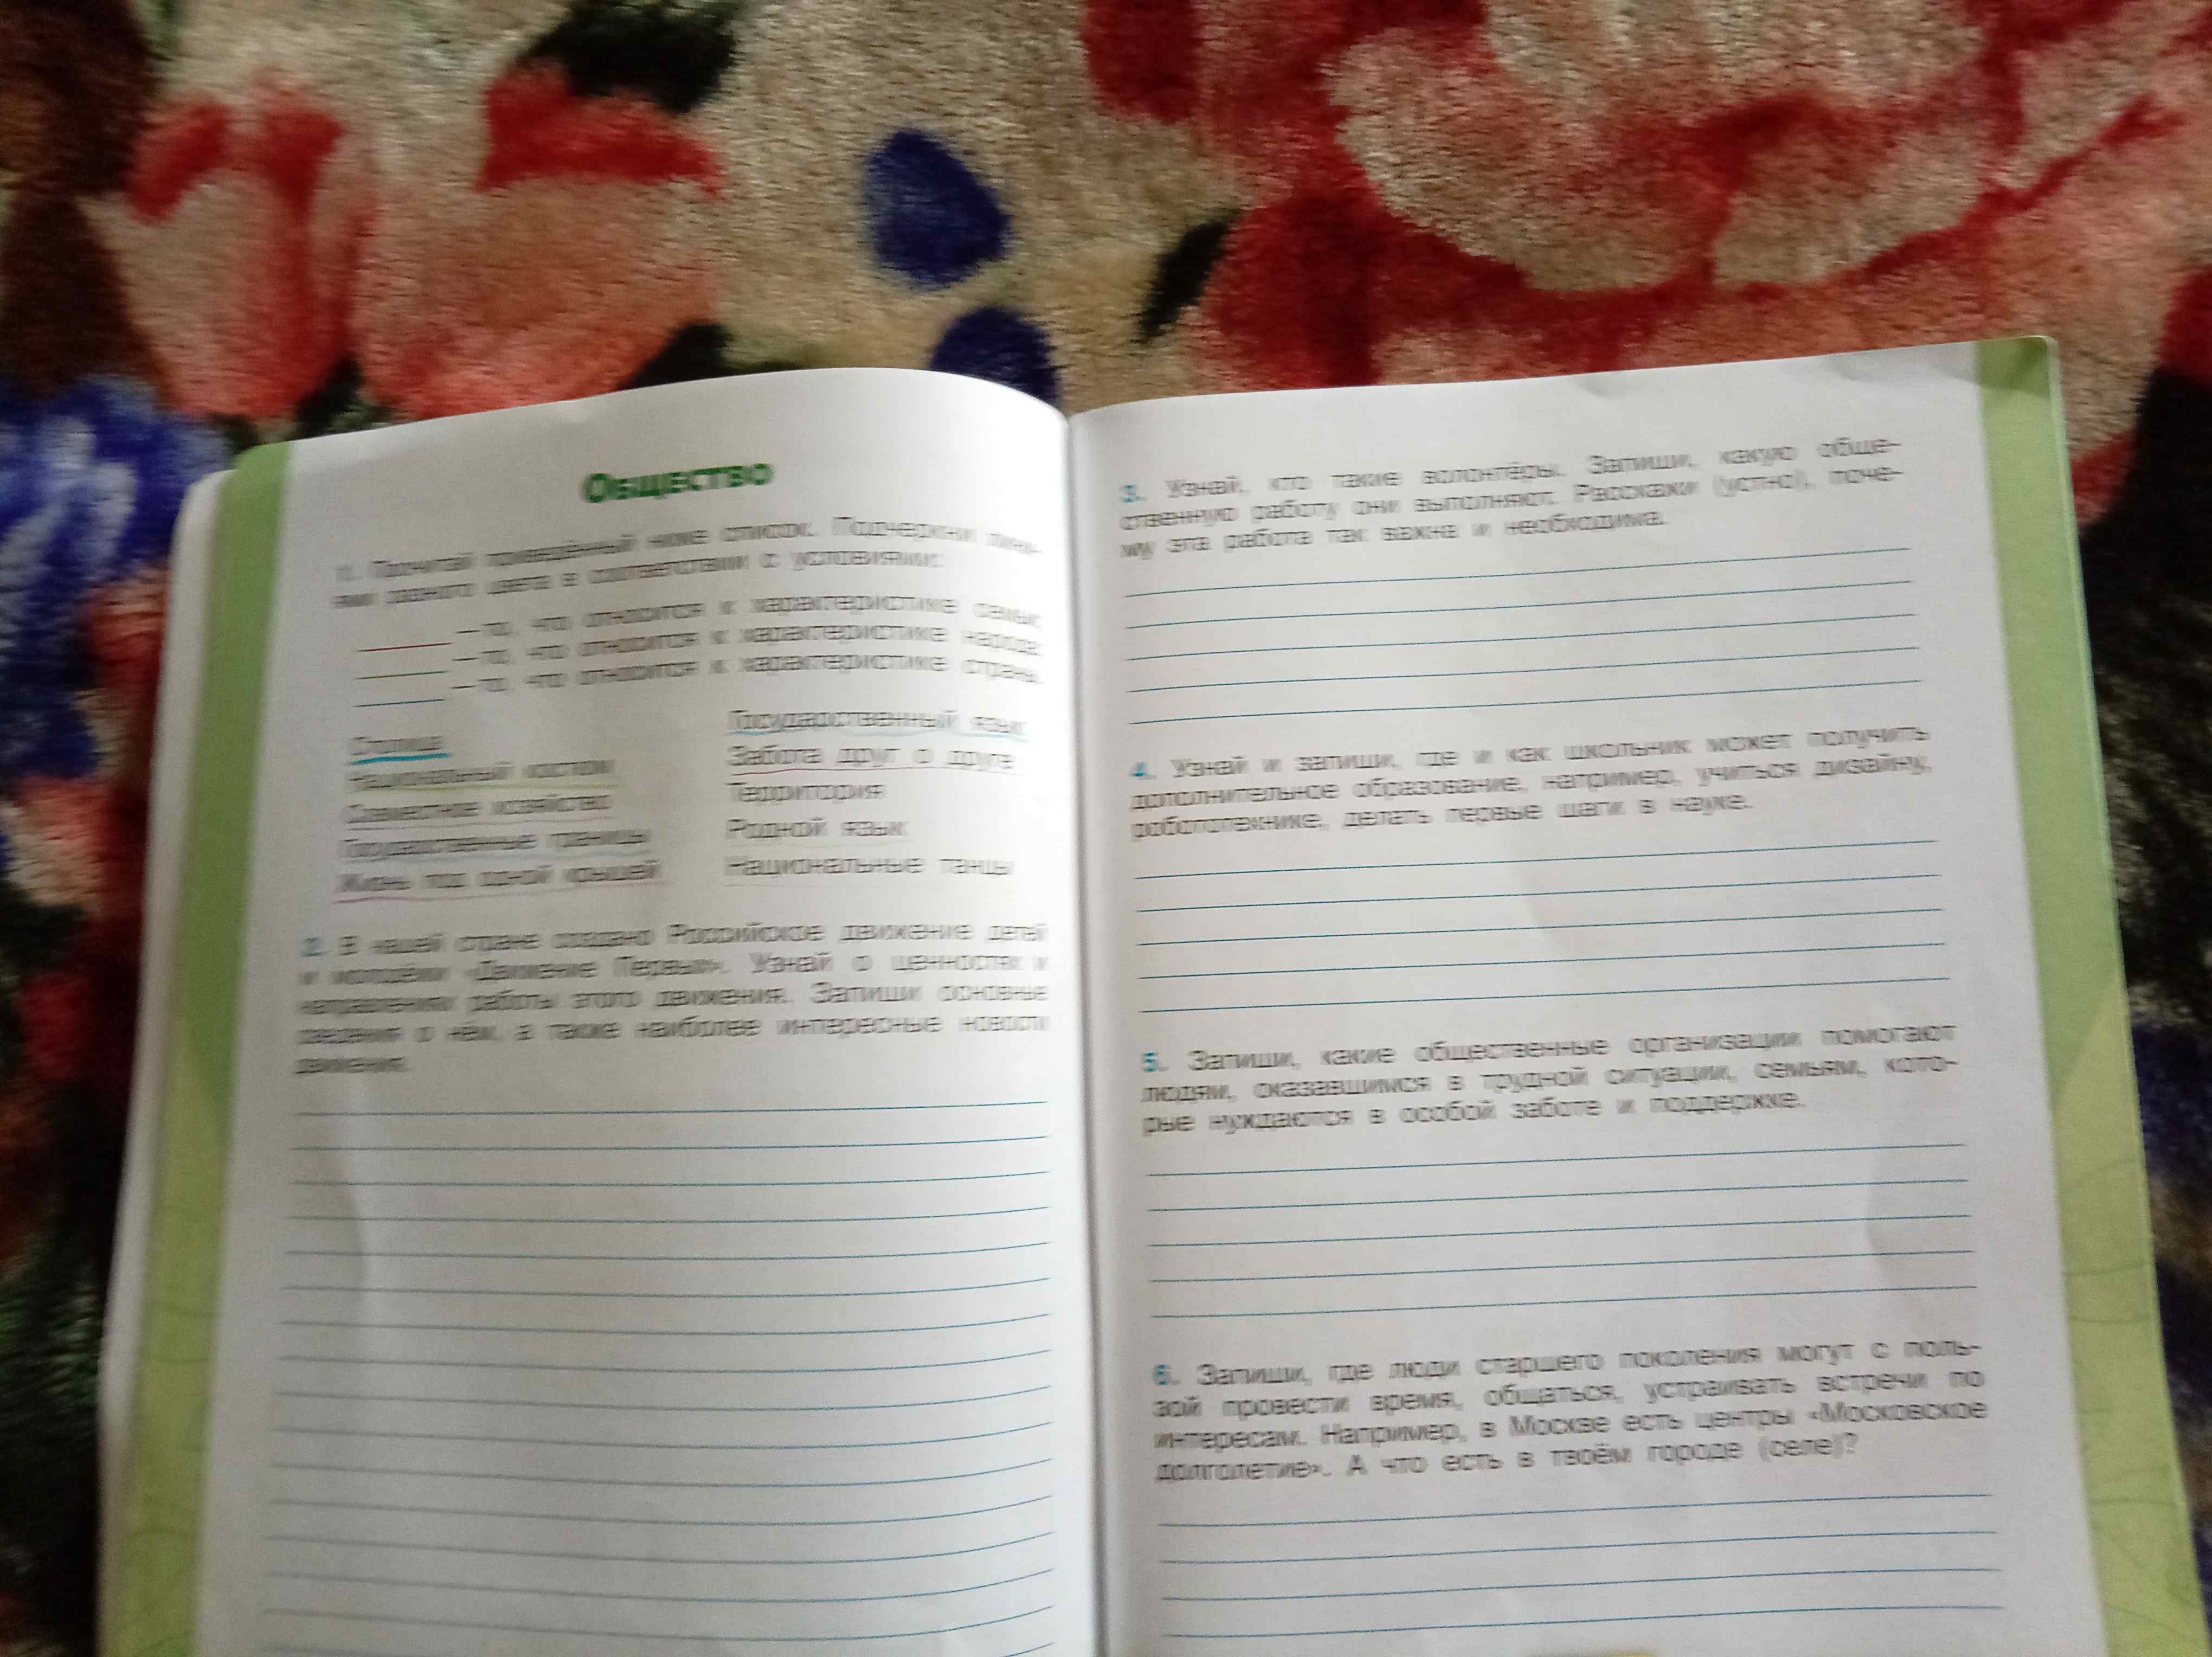 Общество
1. Прочитай приведённый ниже список. Подчеркни лини-
ями разного цвета в соответствии с условиями:
— то, что относится к характеристике семьи;
— то, что относится к характеристике народа;
— то, что относится к характеристике страны.
Столица
Национальный костюм
Совместное хозяйство
Государственные границы
Жизнь под одной крышей
Государственный язык
Забота друг о друге
Территория
Родной язык
Национальные танцы
2. В нашей стране создано Российское движение детей
и молодёжи «Движение Первых». Узнай о ценностях и
направлениях работы этого движения. Запиши основные
сведения о нём, а также наиболее интересные новости
движения.
3. Узнай, кто такие волонтёры. Запиши, какую обще-
ственную работу они выполняют. Расскажи (устно), поче-
му эта работа так важна и необходима.
4. Узнай и запиши, где и как школьник может получить
дополнительное образование, например, учиться дизайну,
робототехнике, делать первые шаги в науке.
5. Запиши, какие общественные организации помогают
людям, оказавшимся в трудной ситуации, семьям, кото-
рые нуждаются в особой заботе и поддержке.
6. Запиши, где люди старшего поколения могут с поль-
зой провести время, общаться, устраивать встречи по
интересам. Например, в Москве есть центры «Московское
долголетие». А что есть в твоём городе (селе)?